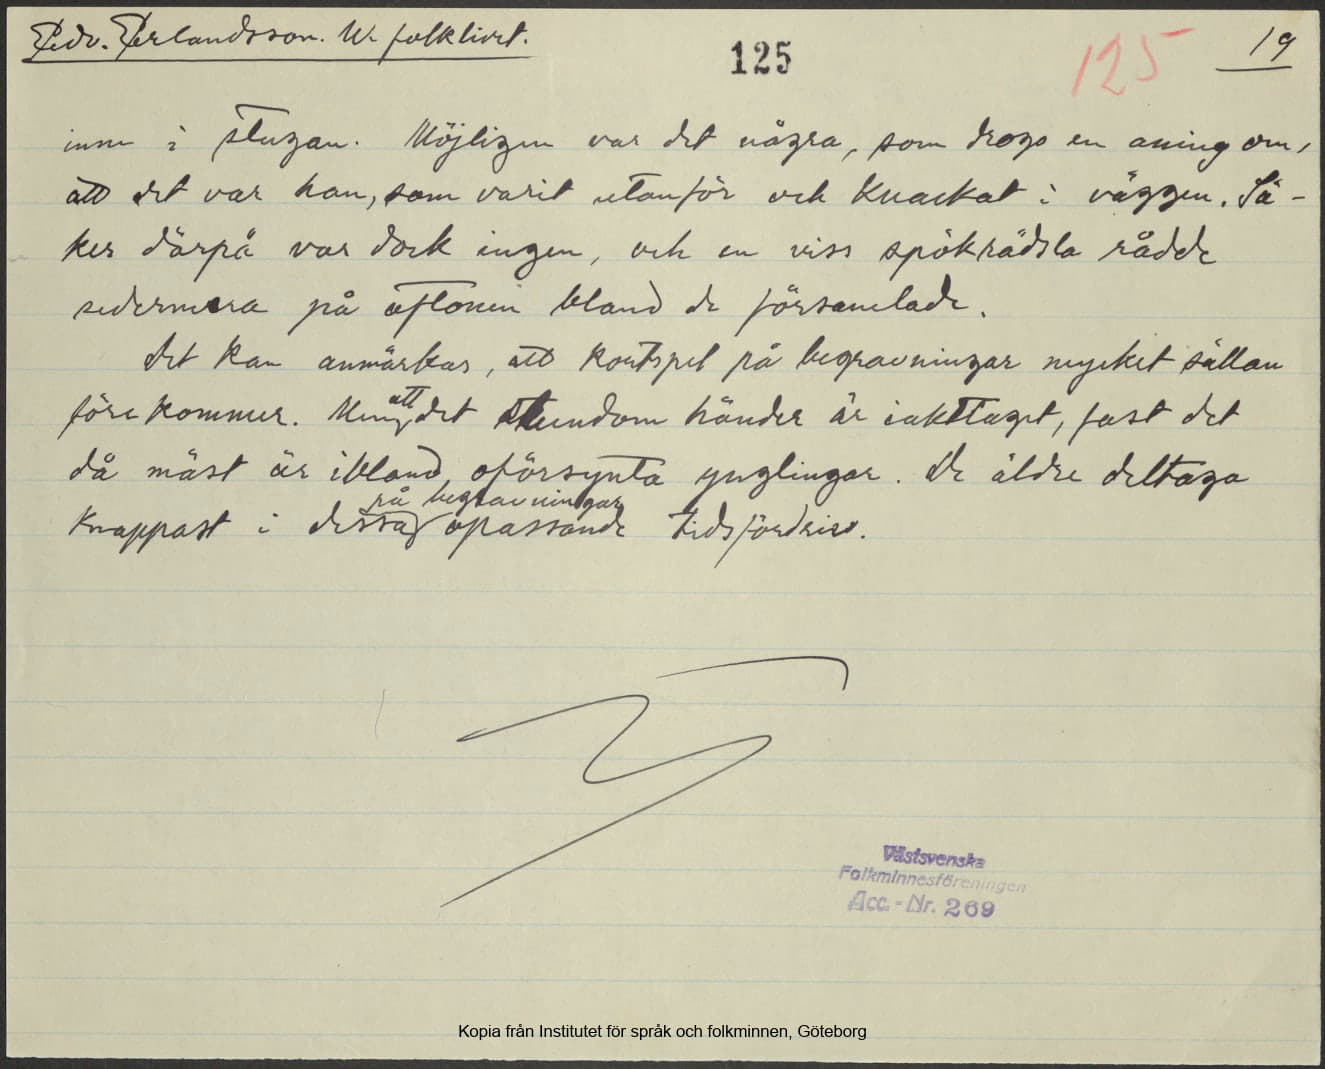 Edv. Erlandsson. Ur folklivet.
125
125
19
inne i stugan. Möjligen var det några, som drogo en aning om,
att det var han, som varit utanför och knackat i väggen. Sä-
ker därpå var dock ingen, och en viss spökrädsla rådde
sedermera på aftonen bland de församlade.
Det kan anmärkas, att kortspel på begravningar mycket sällan
förekommer. Men att det stundom händer är iakttaget, fast det
då mäst är ibland oförsynta ynglingar. De äldre deltaga
knappast i detta på begravningar opassande tidsfördriv.
Västsvenska
Folkminnesföreningen
Acc.-Nr. 269
Kopia från Institutet för språk och folkminnen, Göteborg